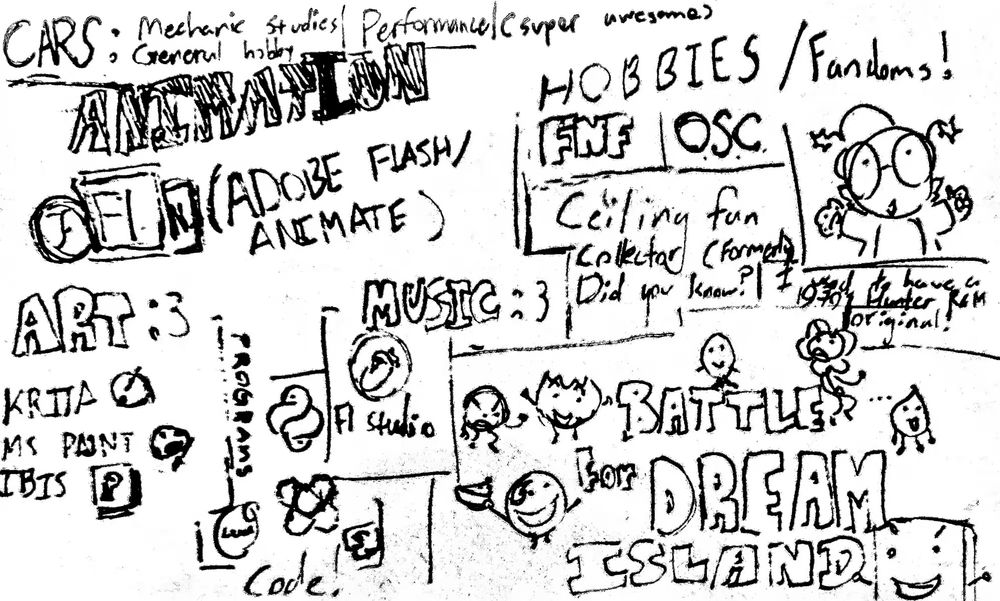 CARS: Mechanic studies / Performance / (super awesome)
General hobby
ANIMATION
F Fl N (ADOBE FLASH/
ANIMATE)
HOBBIES / Fandoms!
FNF OSC
Ceiling fan
Collector (Formerly)
Did you know? I used to have a
1979 Hunter R&M
Original!
ART :3
KRITA
MS PAINT
IBIS P
PROGRAMS
Code!
MUSIC :3
Fl studio
BATTLE
FOR DREAM
ISLAND